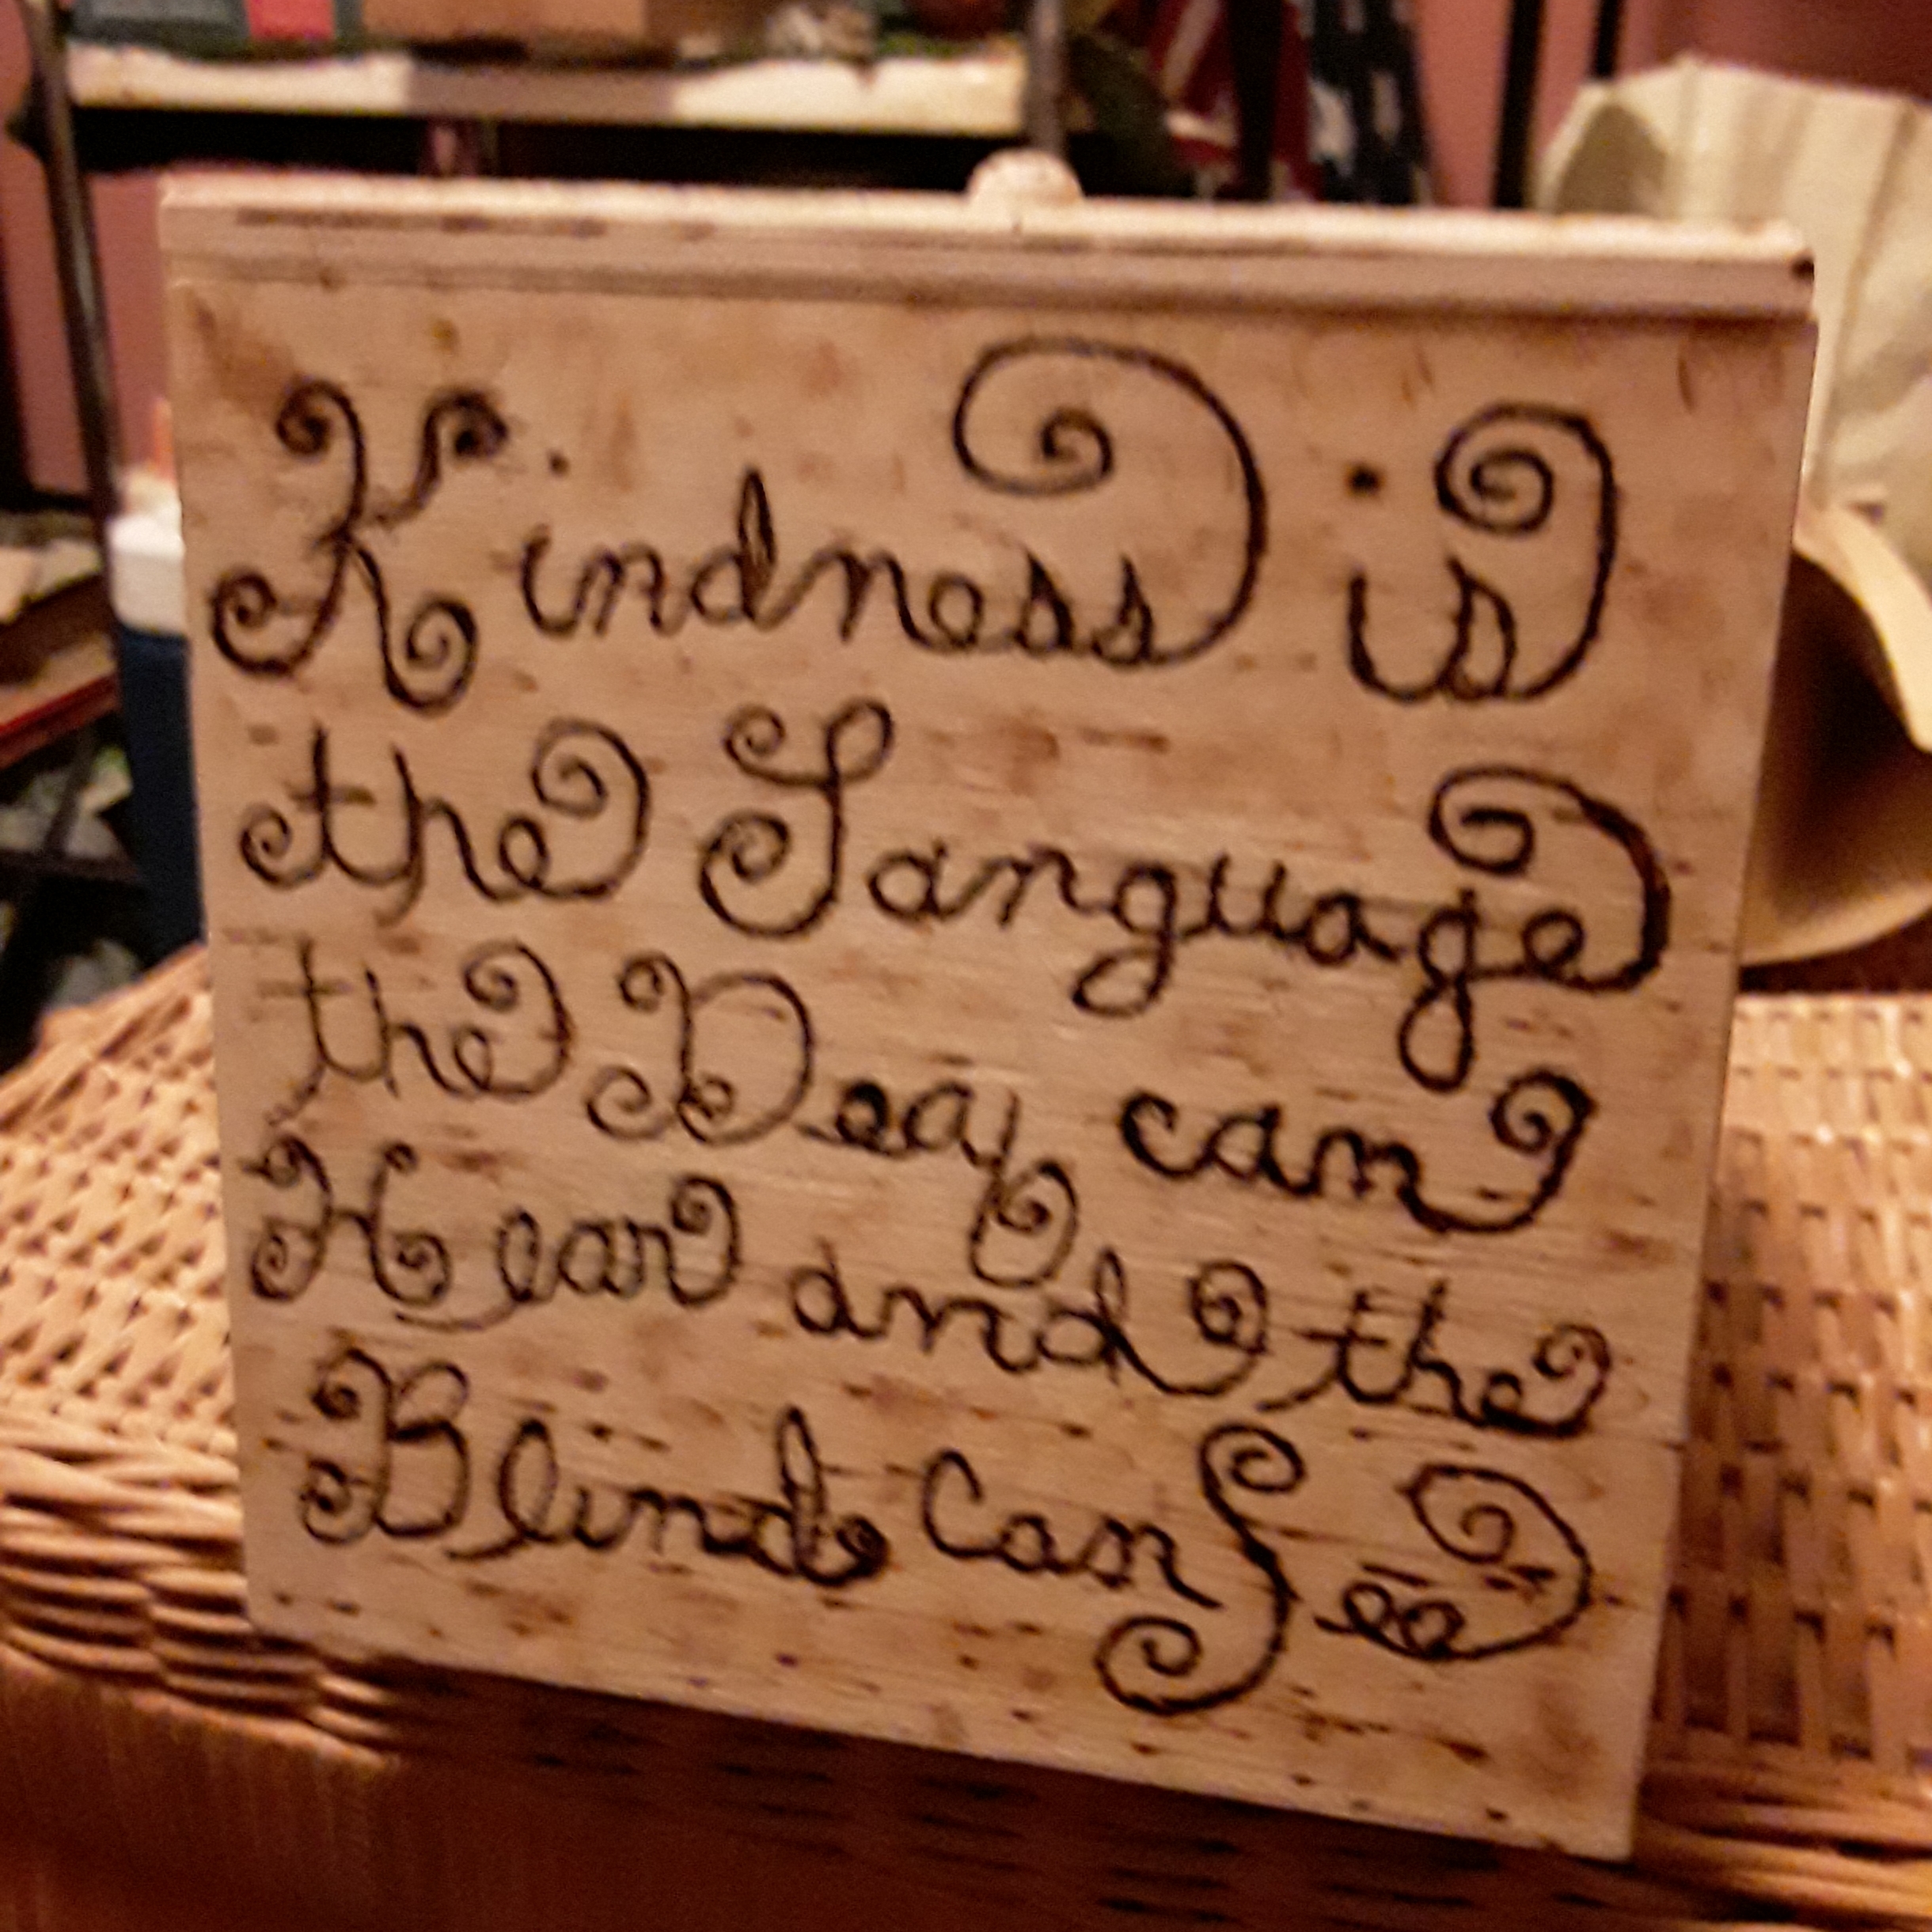 Kindness is
the Language
the Deaf can
Hear and the
Blind Can See